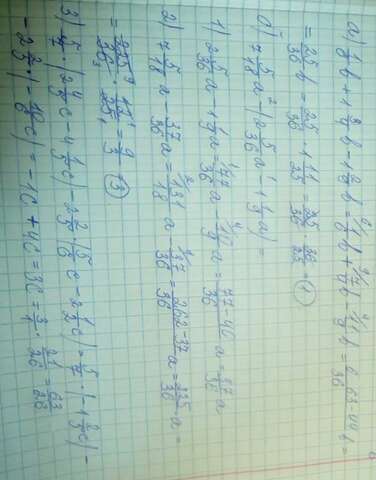 а) 1/6 b + 1 3/4 b - 1 2/9 b = 1/6 b + 7/4 b - 11/9 b = (6+63-44)/36 b =
= 25/36 b = 25/36 · 1 11/25 = 25/36 · 36/25 = 1
б) 7 5/18 a - (2 5/36 a + 1 1/9 a) =
1) 2 5/36 a - 1 1/9 a = 77/36 a - 10/9 a = (77-40)/36 a = 37/36 a
2) 7 5/18 a - 37/36 a = 131/18 a - 37/36 = (262-37)/36 a = 225/36 a =
= 225/36 · 12/25 = 9/3 = 3
3) 5/7 · (2 4/5 c - 4 1/5 c) - 2 2/5 · (5/6 c - 2 1/2 c) = 5/7 · (-1 2/5 c) -
- 2 2/5 · (-10/6 c) = -1c + 4c = 3c = 3/1 · 21/26 = 63/26